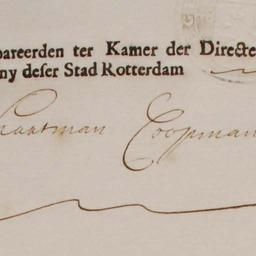 pareerden ter Kamer der Directe
ny deſer Stad Rotterdam
Coopman